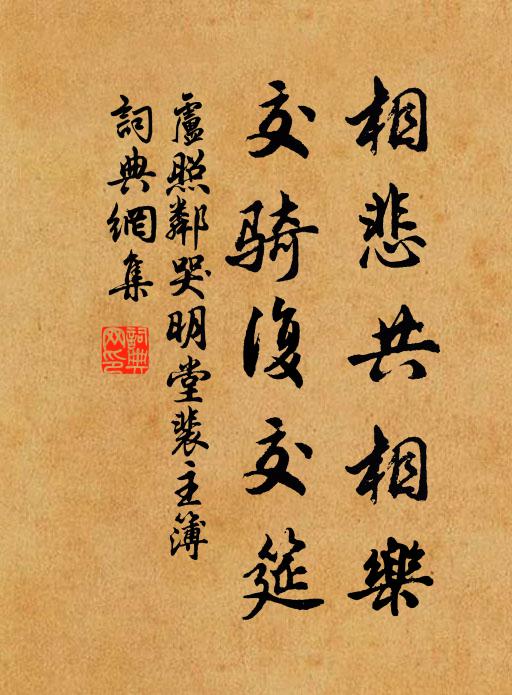 相悲共相樂
交騎復交筵
盧照鄰哭明堂裴主簿
詞典網集
詞典
网印